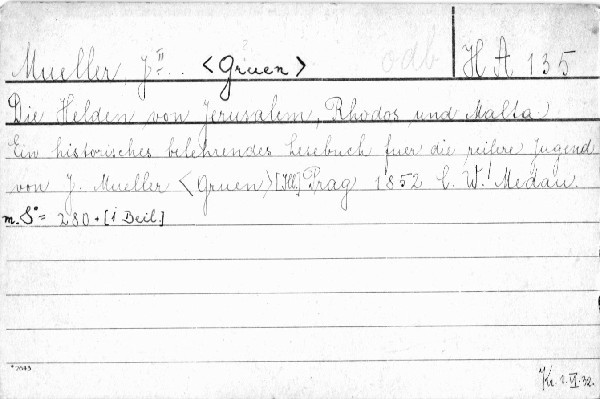 Mueller, J. II. <Gruen>
odb
H A 135
Die Helden von Jerusalem, Rhodos und Malta.
Ein historisches belehrendes Lesebuch fuer die reifere Jugend
von J. Mueller <Gruen> [Ill.] Prag 1852 C. W. Medau.
m. 8° = 280 + [1 Beil.]
*2043
Kr. 2. VI. 32.